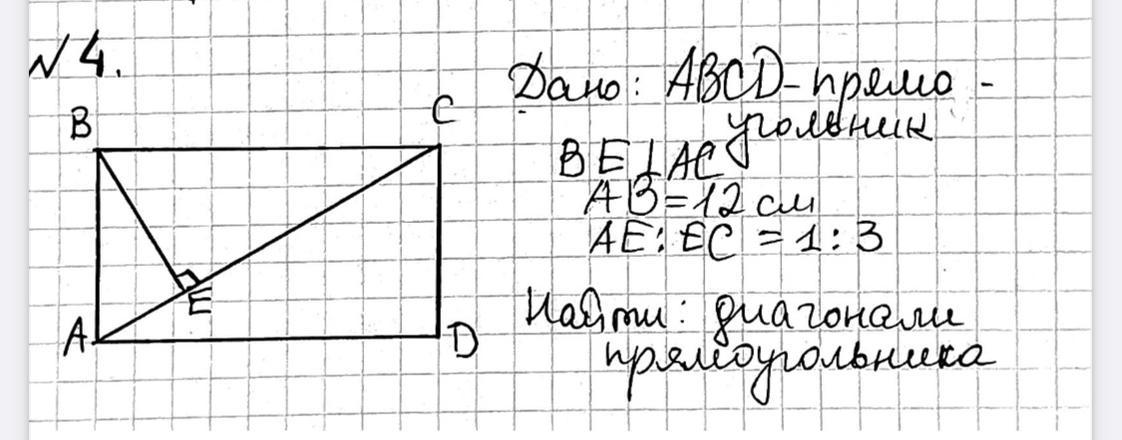 № 4.
B
C
E
A
D
Дано: ABCD - прямо -
угольник
BE⊥AC
AB = 12 см
AE : EC = 1 : 3
Найти: диагонали
прямоугольника